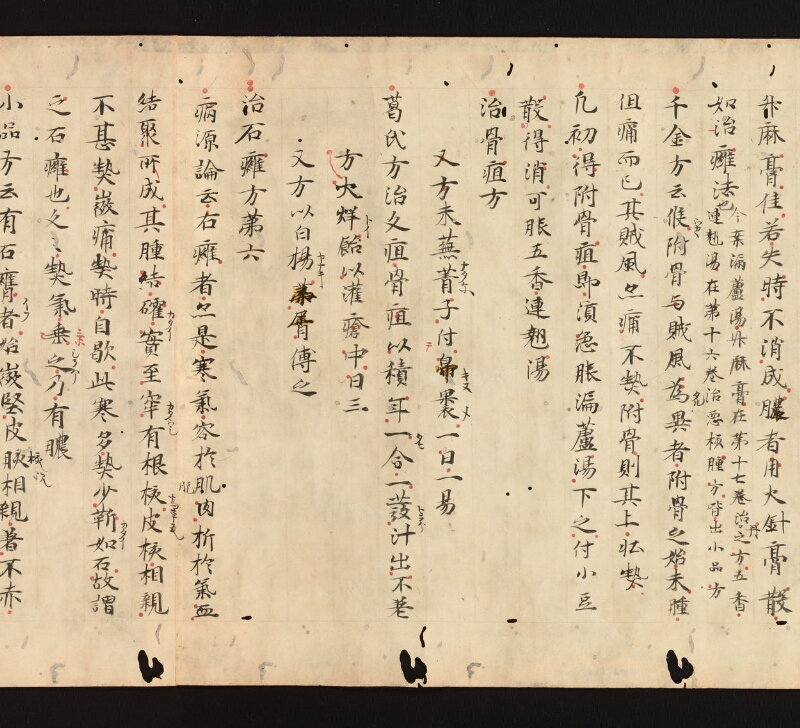 升麻膏佳若失時不消成膿者用火針膏散
如治癰法也 今案漏蘆湯升麻膏在第十七卷治丹之方五香
連翹湯在第十六卷治惡核腫方皆出小品方
千金方云候附骨与賊風為異者附骨之始未腫
但痛而已其賊風亦痛不熱附骨則其上壮熱
凡初得附骨疽即須急服漏蘆湯下之付小豆
散得消可服五香連翹湯
治骨疽方
又方末蕪菁子付帛裹一日一易
葛氏方治久疽骨疽以積年一合一發汁出不差
方火烊飴以灌瘡中日三
又方以白楊葉屑傅之
治石癰方第六
病源論云石癰者亦是寒氣客於肌肉折於氣血
結聚所成其腫結確實至牢有根核皮核相親
不甚熱微痛熱時自歇此寒多熱少䩕如石故謂
之石癰也久々熱氣乗之乃有膿
小品方云有石癰者始微堅皮厥相親著不赤